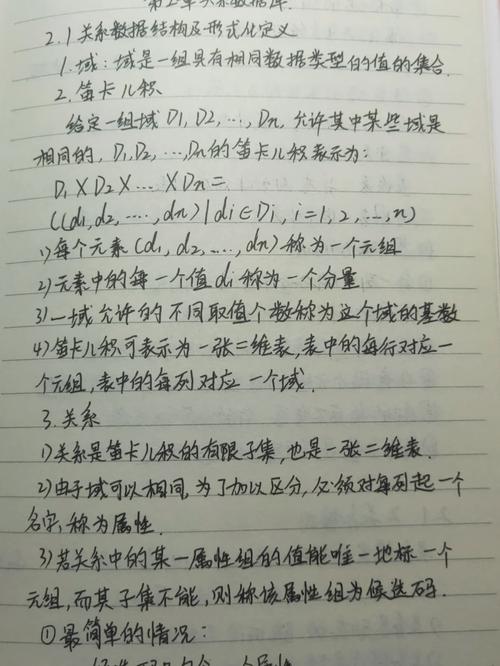 第二章关系数据库.
2.1关系数据结构及形式化定义
1.域:域是一组具有相同数据类型的值的集合.
2.笛卡儿积
给定一组域D1,D2,…,Dn,允许其中某些域是
相同的,D1,D2,…,Dn的笛卡儿积表示为:
D1×D2×…×Dn=
{(d1,d2,…,dn)|di∈Di,i=1,2,…,n}
1)每个元素(d1,d2,…,dn)称为一个元组
2)元素中的每一个值di称为一个分量
3)一域允许的不同取值个数称为这个域的基数
4)笛卡儿积可表示为一张二维表,表中的每行对应一
个元组,表中的每列对应一个域.
3.关系
1)关系是笛卡儿积的有限子集,也是一张二维表.
2)由于域可以相同,为了加以区分,必须对每列起一个
名字,称为属性.
3)若关系中的某一属性组的值能唯一地标一个
元组,而其子集不能,则称该属性组为候选码.
①最简单的情况: